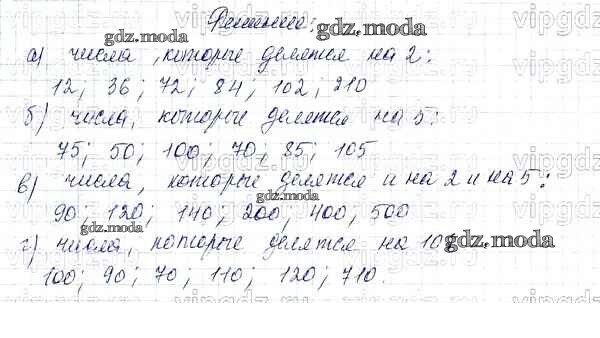 Решение:
а) числа, которые делятся на 2:
12; 36; 72; 84; 102; 210
б) числа, которые делятся на 5:
75; 50; 100; 70; 85; 105
в) числа, которые делятся и на 2 и на 5:
90; 120; 140; 200; 400; 500
г) числа, которые делятся на 10:
100; 90; 70; 110; 120; 710.
gdz.moda
gdz.moda
gdz.moda
gdz.moda
gdz.moda
gdz.moda
gdz.moda
vipgdz
vipgdz
vipgdz